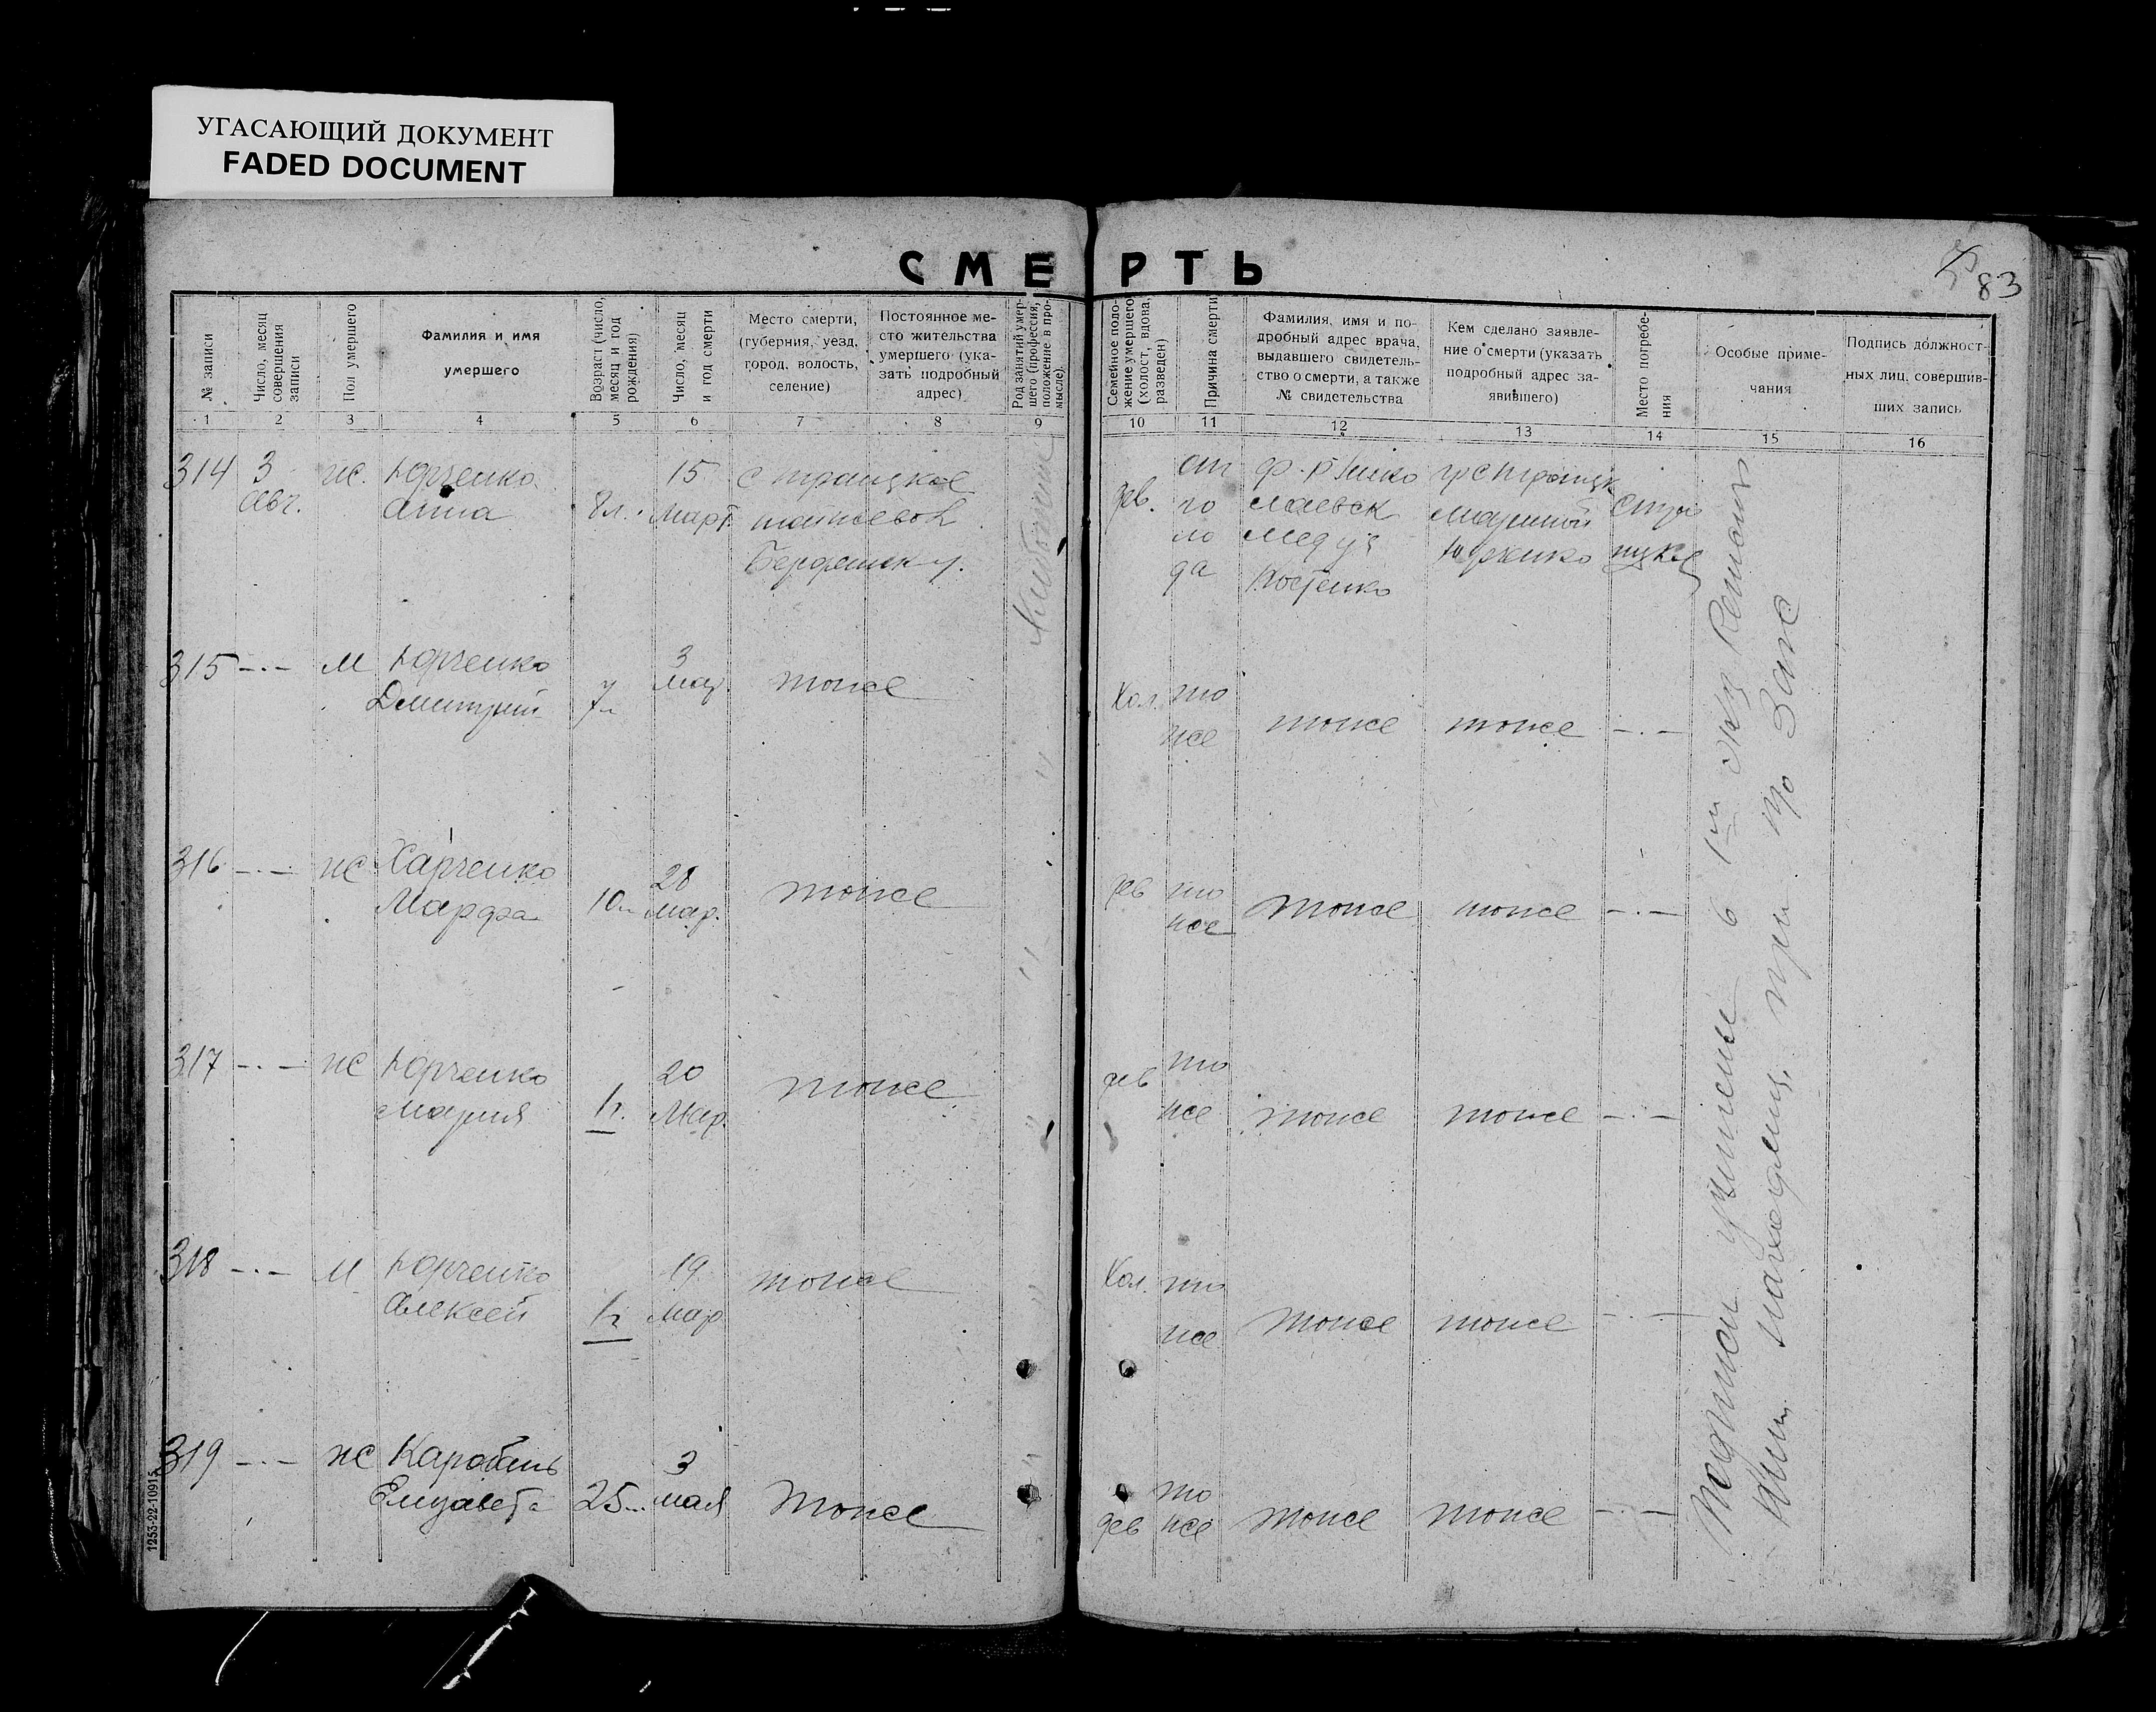 УГАСАЮЩИЙ ДОКУМЕНТ
FADED DOCUMENT
СМЕРТЬ
83
№ записи
Число, месяц
совершения
записи
Пол умершего
Фамилия и имя
умершего
Возраст (число,
месяц и год
рождения)
Число, месяц
и год смерти
Место смерти,
(губерния, уезд,
город, волость,
селение)
Постоянное ме-
сто жительства
умершего (ука-
зать подробный
адрес)
Род занятий умер-
шего (профессия,
положение в про-
мысле)
Семейное поло-
жение умершего
(холост, вдова,
разведен)
Причина смерти
Фамилия, имя и по-
дробный адрес врача,
выдавшего свидетель-
ство о смерти, а также
№ свидетельства
Кем сделано заявле-
ние о смерти (указать
подробный адрес за-
явившего)
Место погребе-
ния
Особые приме-
чания
Подпись должност-
ных лиц, совершив-
ших запись
1 2 3 4 5 6 7 8 9 10 11 12 13 14 15 16
314 3 ж. Юрченко 15 с Троицкое
авг. Анна 8 л. Март.
Бердянск у.
дев. от
го
ло
да
Костенко
Юрченко
315 —·— м Юрченко 3
Дмитрий 7 л Мар. тоже
Хол. то
же тоже тоже —·—
316 —·— ж Харченко 28
Марфа 10 л Мар. тоже
дев то
же тоже тоже —·—
317 —·— ж Юрченко 20
Мария 1 г. Мар. тоже
дев то
же тоже тоже —·—
318 —·— м Юрченко 19
Алексей 1 г Мар тоже
Хол. то
же тоже тоже —·—
319 —·— ж 3
Елизавета 25 мая тоже
дев то
же тоже тоже —·—
1253-22-10915